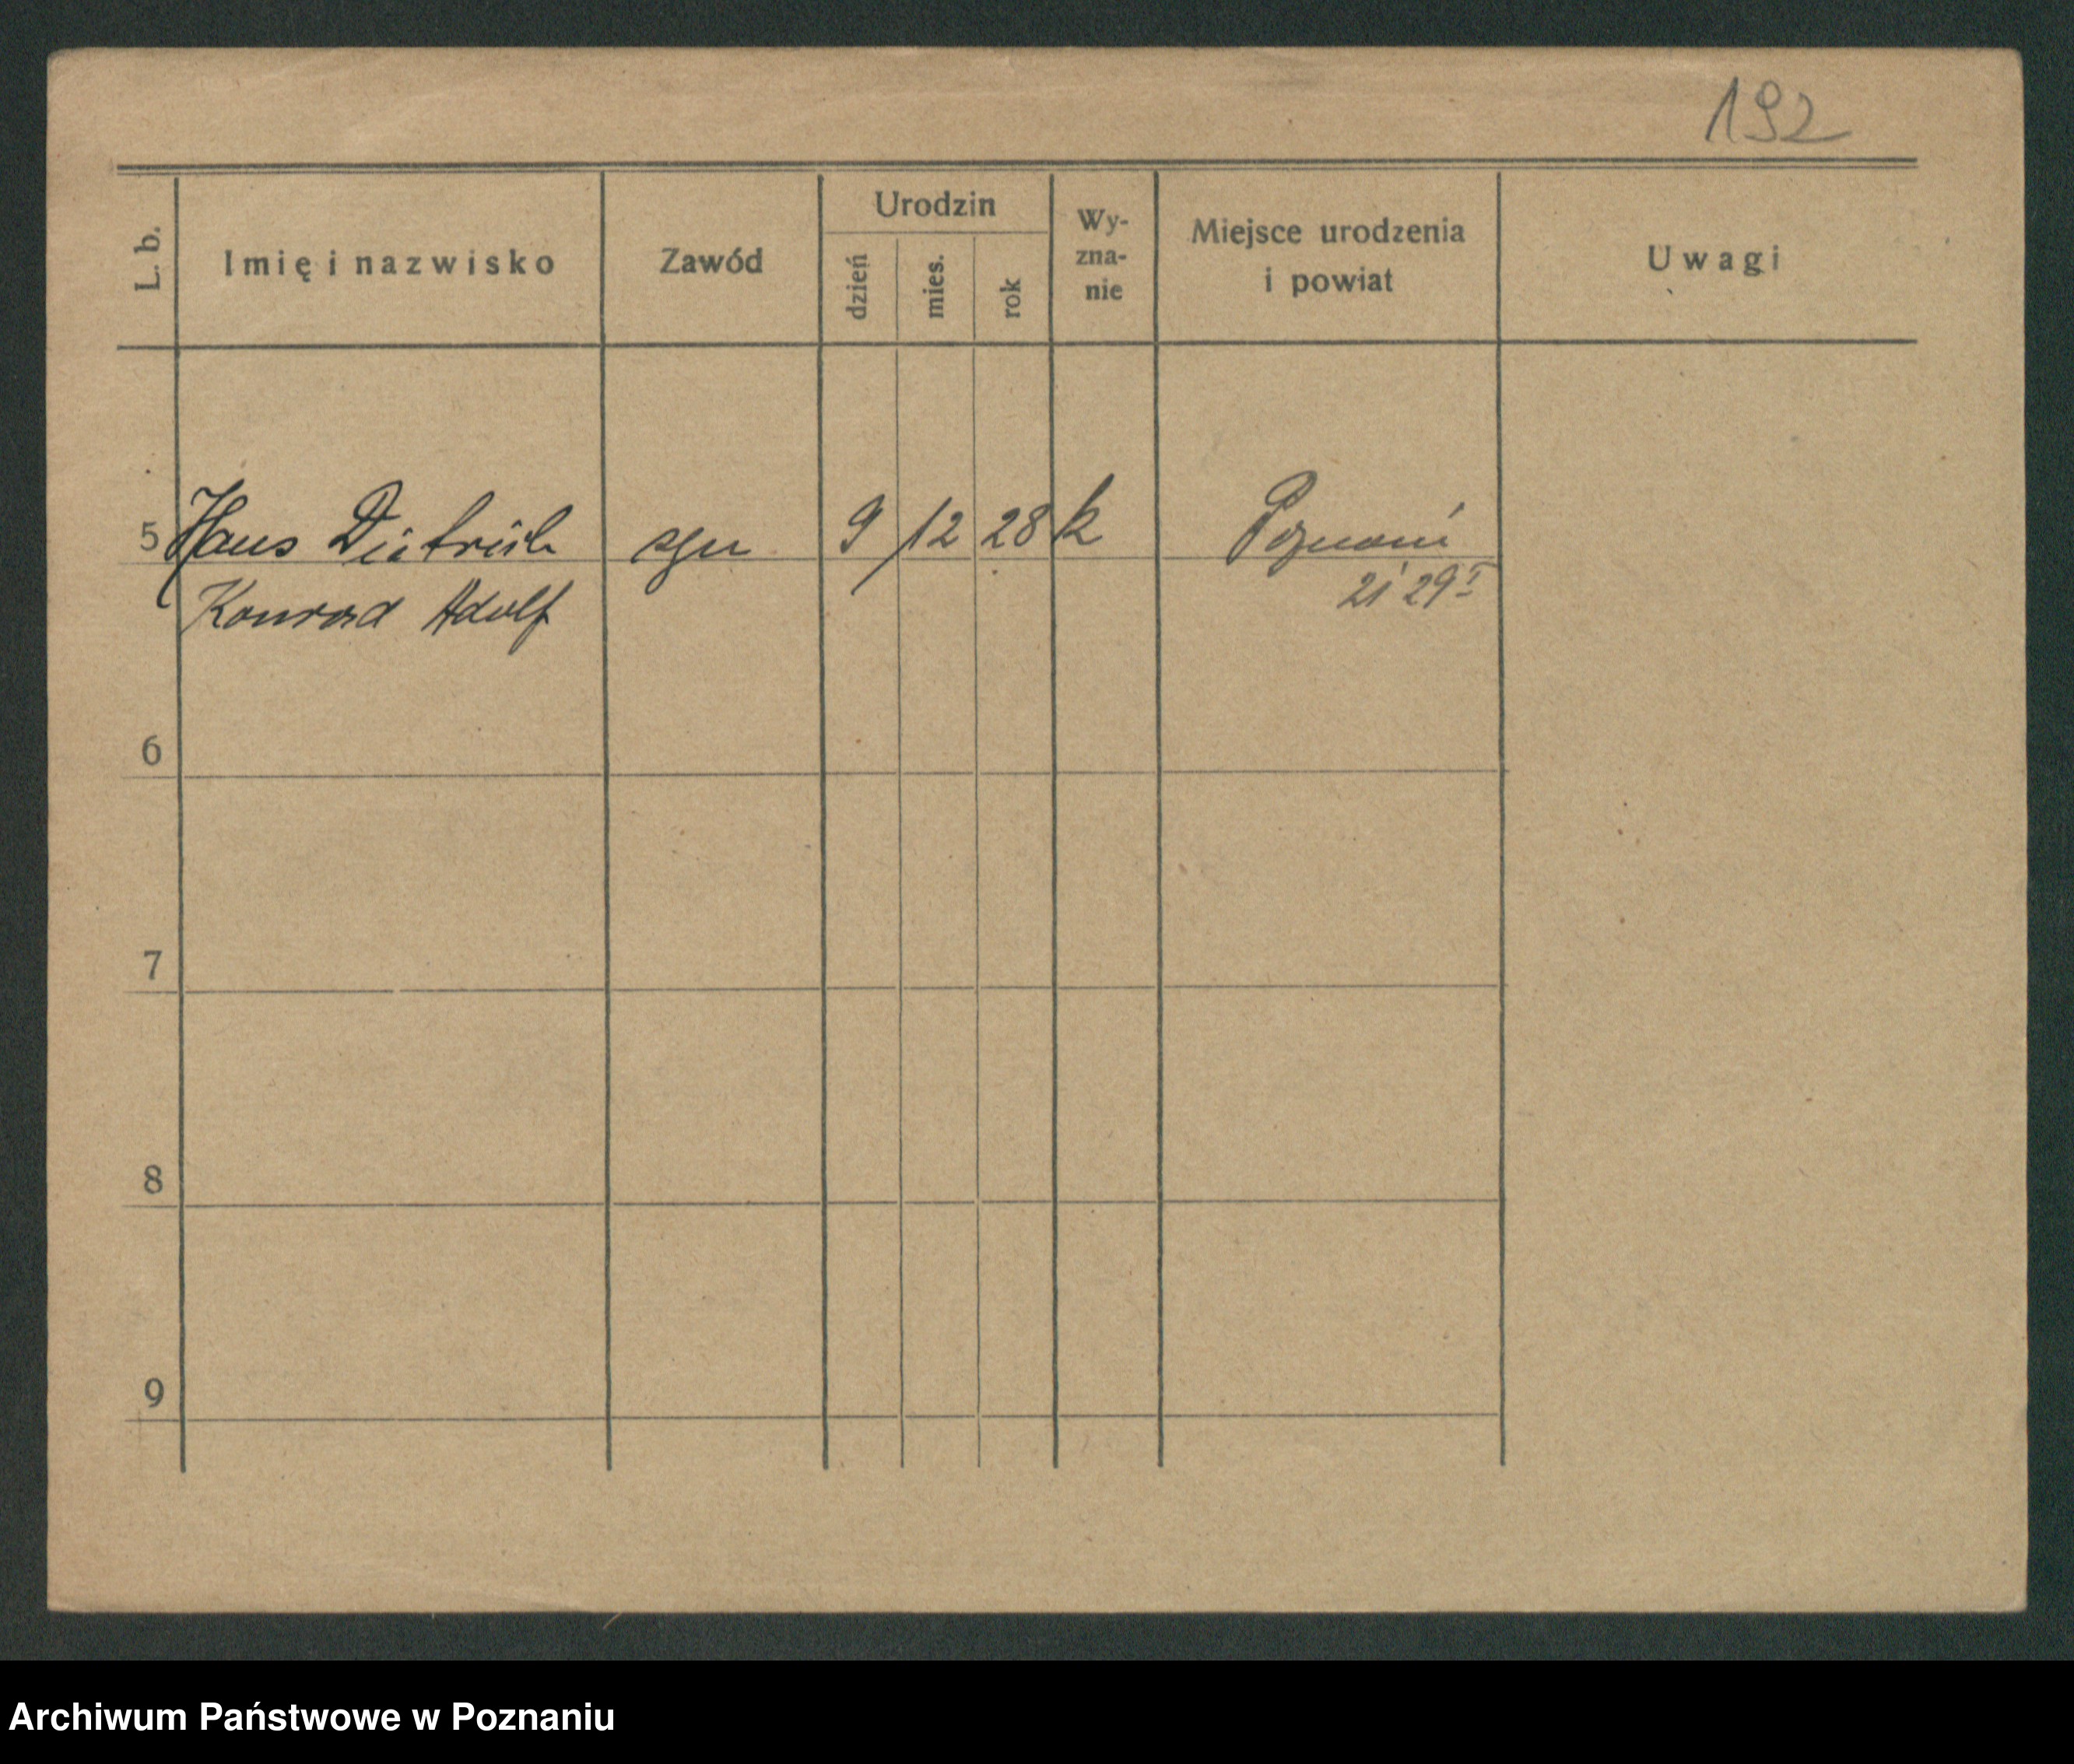 192
L. b.
Imię i nazwisko
Zawód
Urodzin
dzień
mies.
rok
Wy-
zna-
nie
Miejsce urodzenia
i powiat
Uwagi
5 Hans Dietrich syn 9 12 28 k Poznań
Konrad Adolf 21 29 I
6
7
8
9
Archiwum Państwowe w Poznaniu